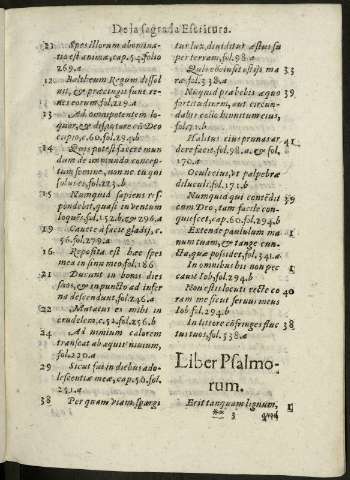 De la sagrada Escritura.
21 Spes illorum abomina-
tio est animæ, cap. 54. folio
269. a
12 Baltheum Regum dissol
uit, & præcingit fune re-
nes eorum fol. 219. a
13 Ad omnipotentem lo-
quar, & disputare cũ Deo
cupio, c. 60. fol. 294. b
14 Quis potest facere mun
dum de immundo concep-
tum semine, non ne tu qui
solus es, fol. 223. b
15 Nunquid sapiens respondebit, quasi in ventum
loquẽs, fol. 152. b, & 296. a
19 Cauete à facie gladij, c.
56. fol. 279. a
16 Reposita est hæc spes
mea in sinu meo. fol. 186
21 Ducunt in bonis dies
suos, & in puncto ad infer
na descendunt, fol. 246. a
22 Mutatus es mihi in
crudelem, c. 52. fol. 256. b
24 Ad nimium calorem
transeat ab aquis niuium,
fol. 220. a
29 Sicut fui in diebus ado-
lescentiæ meæ, cap. 50. fol.
251. a
38 Per quam viam spargi
tur lux, diuiditur æstus su
per terram, fol. 98. a
Quis conclusit ostijs ma
re, fol. 338. a
Nunquid præbebis equo 39
fortitudinem, aut circun-
dabis collo hinnitum eius,
fol. 71. b
Halitus eius prunas ar- 41
dere facit. fol. 98. a. & fol.
170. a
Oculi eius, vt palpebræ
diluculi, fol. 171. b
Numquid qui contẽdit 39
cum Deo, tam facile con-
quiescet, cap. 60. fol. 294. b
Extende paululum ma
num tuam, & tange cun-
cta, quæ possidet, fol. 341. a
In omnibus his non pec 1
cauit Iob fol. 294. b
Non estis locuti recte co 40
ram me sicut seruus meus
Iob fol. 294. b
In littore cõfringes fluc 38
tus tuos, fol. 338. a
Liber Psalmo-
rum.
Erit tanquam lignum, 1
** 3 quod